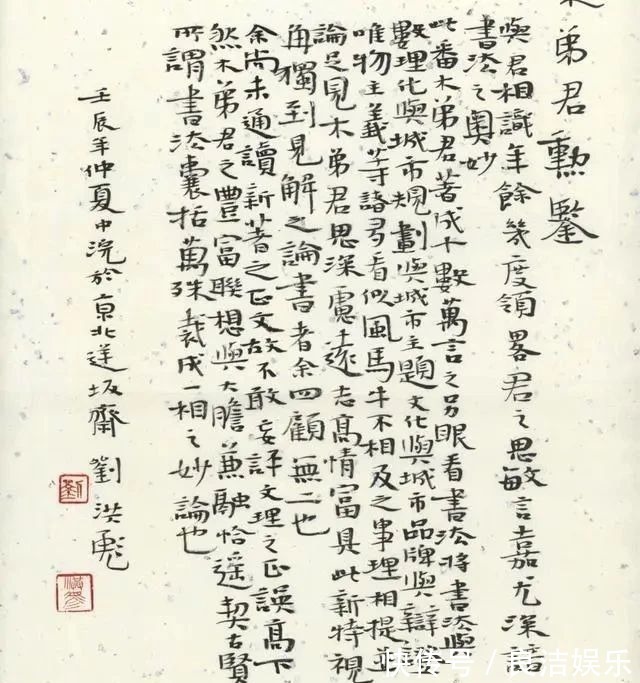 弟君勲鑒
與君相識年餘幾度領畧君之思敏言嘉尤深諳
書法之奧妙
此番木弟君著成十數萬言之另眼看書法將書法與
數理化與城市規劃與城市主題文化與城市品牌與辯
唯物主義等諸多看似風馬牛不相及之事理相提並
論足見木弟君思深慮遠志高情富具此新特視
角獨到見解之論書者余四顧無二也
余尚未通讀新著之正文故不敢妄評文理之正誤高下
然木弟君之豐富聯想與大膽兼融恰遥契古賢
所謂書法囊括萬殊裁成一相之妙論也
壬辰年仲夏中浣於京北逆坂齋劉洪彪
劉
快传号/良洁娱乐